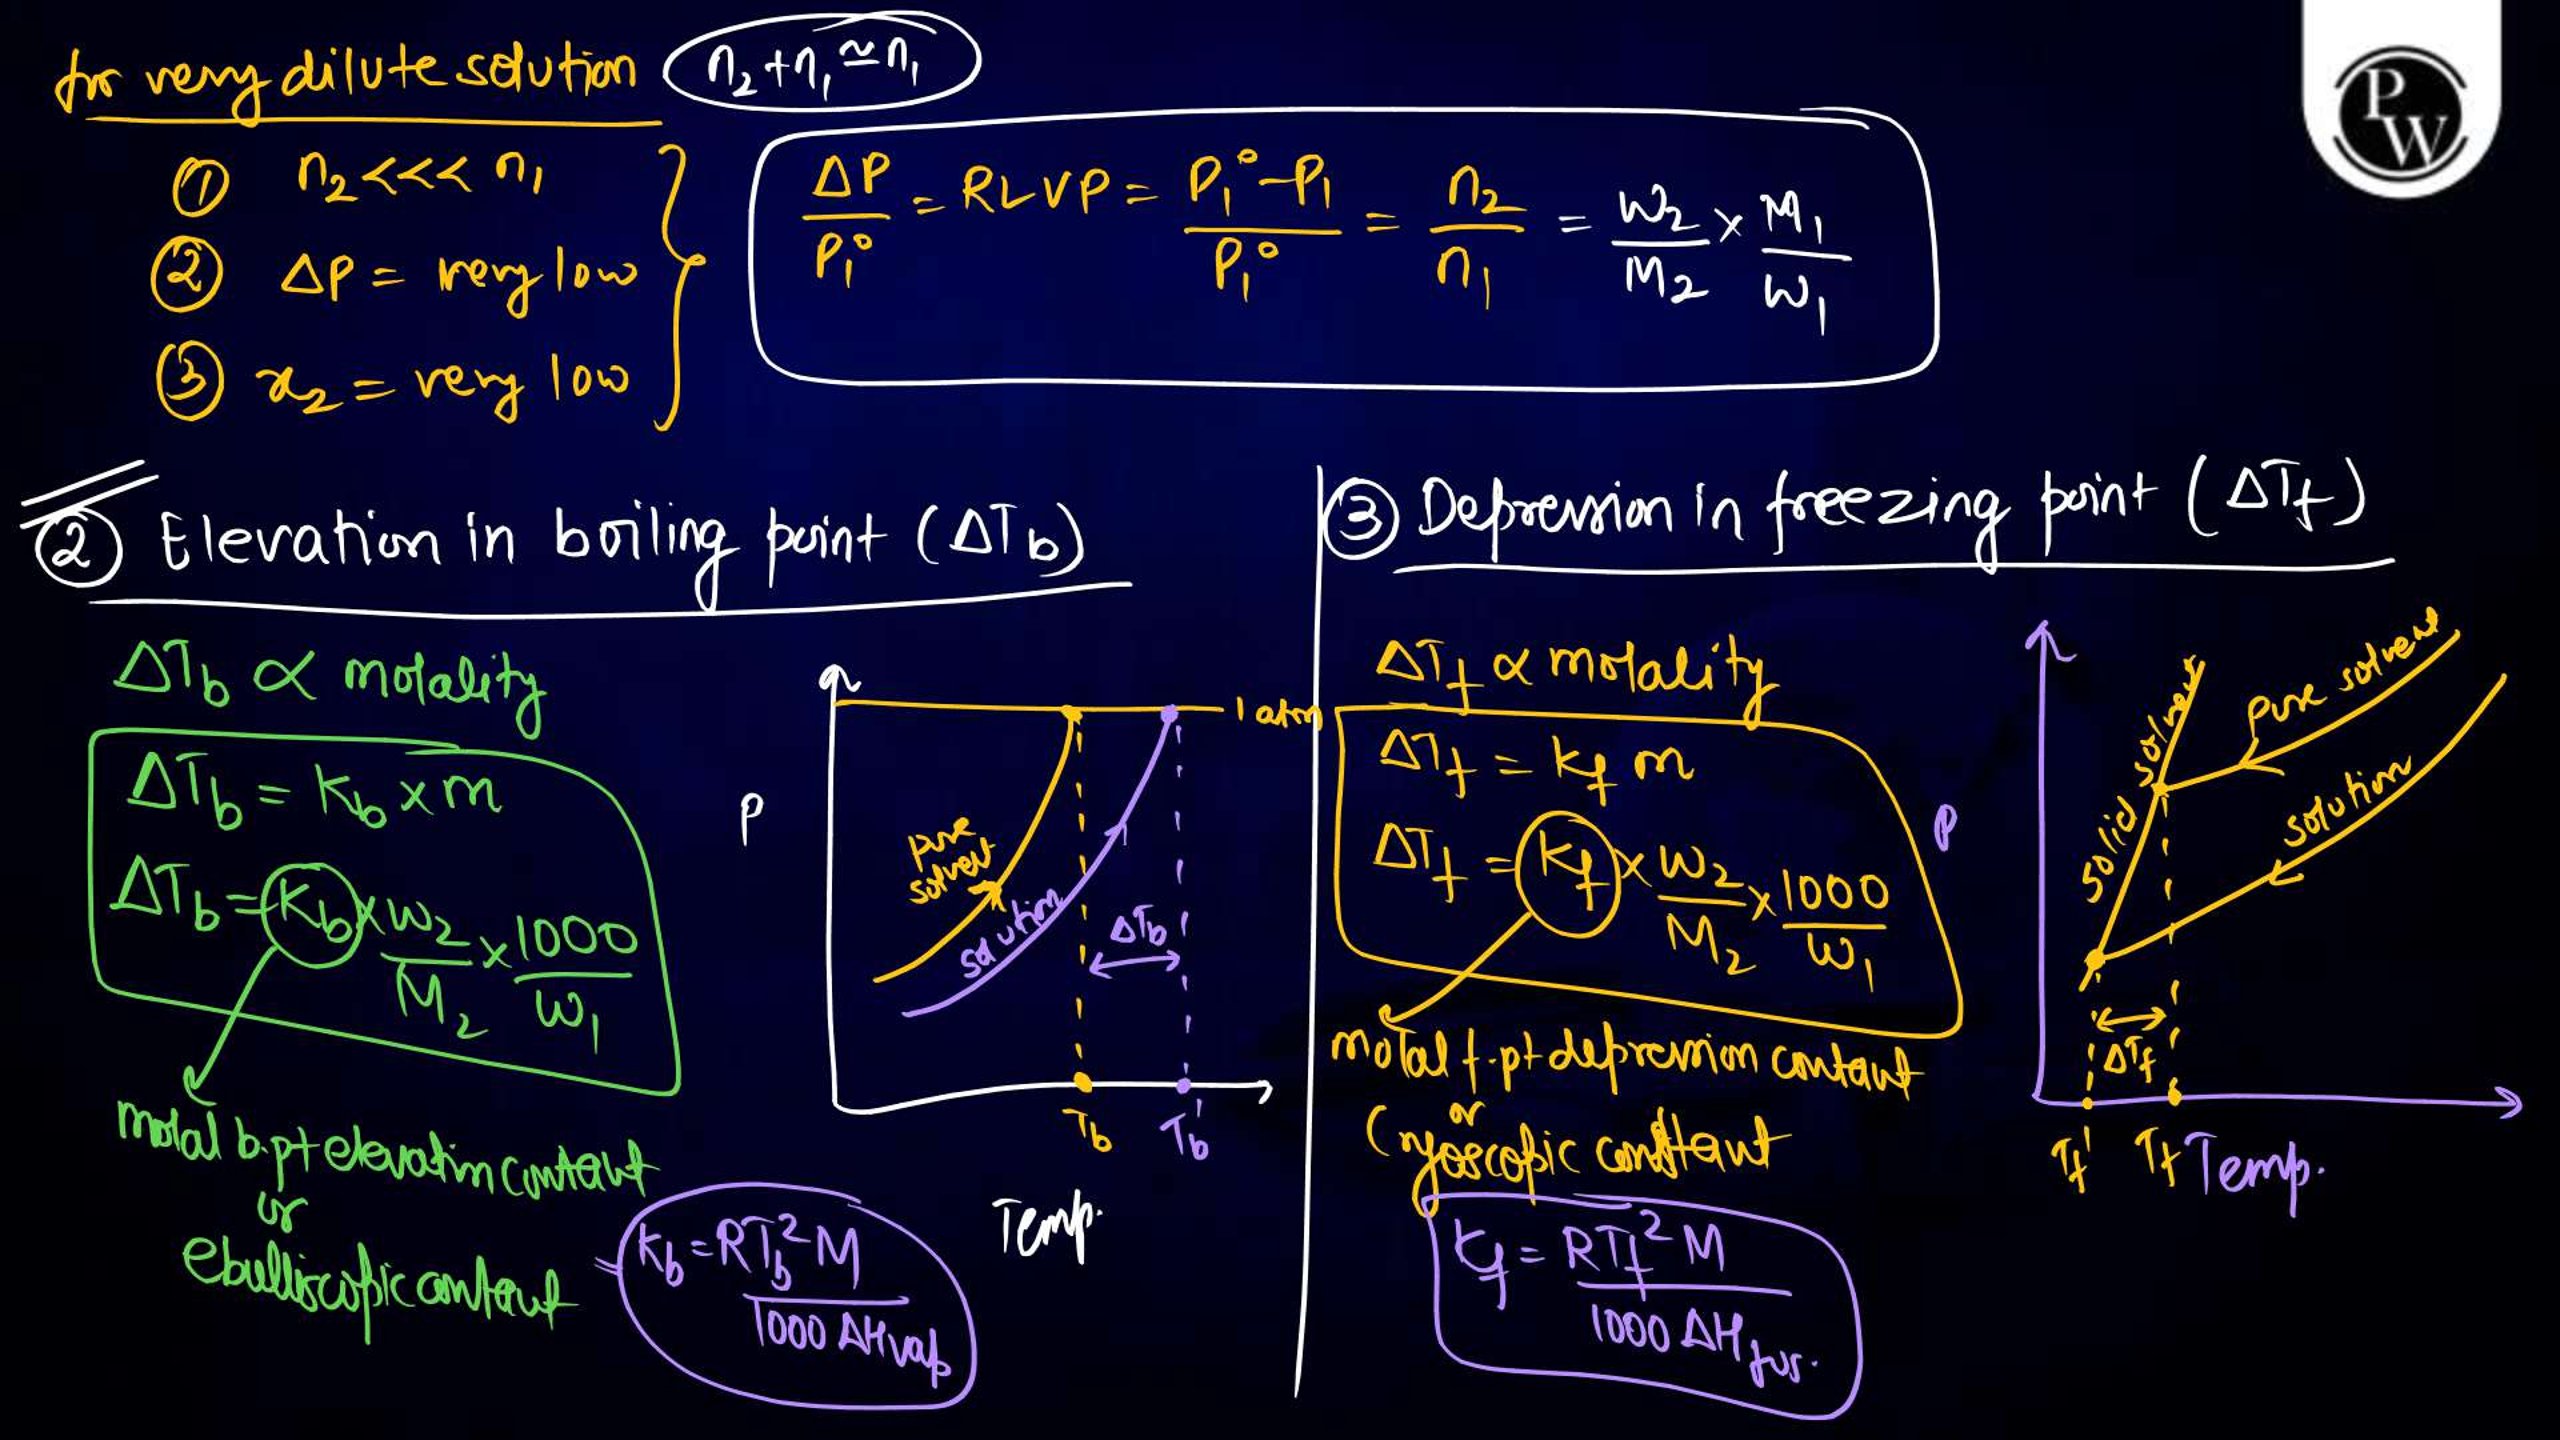 for very dilute solution n₂+n₁≃n₁
① n₂<<< n₁
② ΔP = very low
③ x₂ = very low
ΔP/P₁° = RLVP = P₁°-P₁/P₁° = n₂/n₁ = W₂/M₂ × M₁/W₁
P
W
② Elevation in boiling point (ΔTb)
ΔTb ∝ molality
ΔTb = Kb × m
ΔTb = Kb × W₂/M₂ × 1000/W₁
molal b.pt elevation contant
or
ebullioscopic contant
Kb = RTb²M/1000 ΔHvap
P
1 atm
pure
solvent
solution
ΔTb
Tb Tb'
Temp.
③ Depression in freezing point (ΔTf)
ΔTf ∝ molality
ΔTf = Kf m
ΔTf = Kf × W₂/M₂ × 1000/W₁
molal f.pt depression contant
or
Cryoscopic constant
Kf = RTf²M/1000 ΔHfus.
P
solid solvent
pure solvent
solution
ΔTf
Tf' Tf Temp.